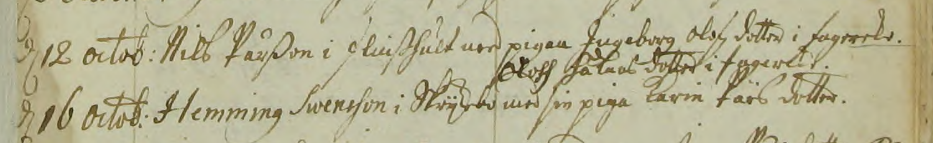 d 12 octob: Nils Pärsson i Flinshult med pigan Ingeborg Olofz dotter i fagerekr.
Oloff dotter i fagerekr.
d 16 octob: Hemming Swensson i med sin piga Karin Pärs dotter.